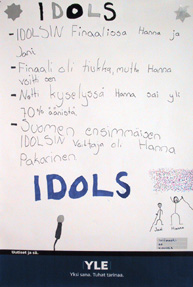 IDOLS
- IDOLSIN Finaalissa Hanna ja
Jani
- Finaali oli tiukka, mutta Hanna
voitti sen
- Netti kyselyssä Hanna sai yli
70% äänistä
- Suomen ensimmäisen
IDOLSIN Voittaja oli Hanna
Pakarinen
IDOLS
Jani Hanna
Uutiset ja sä.
YLE
Yksi sana. Tuhat tarinaa.